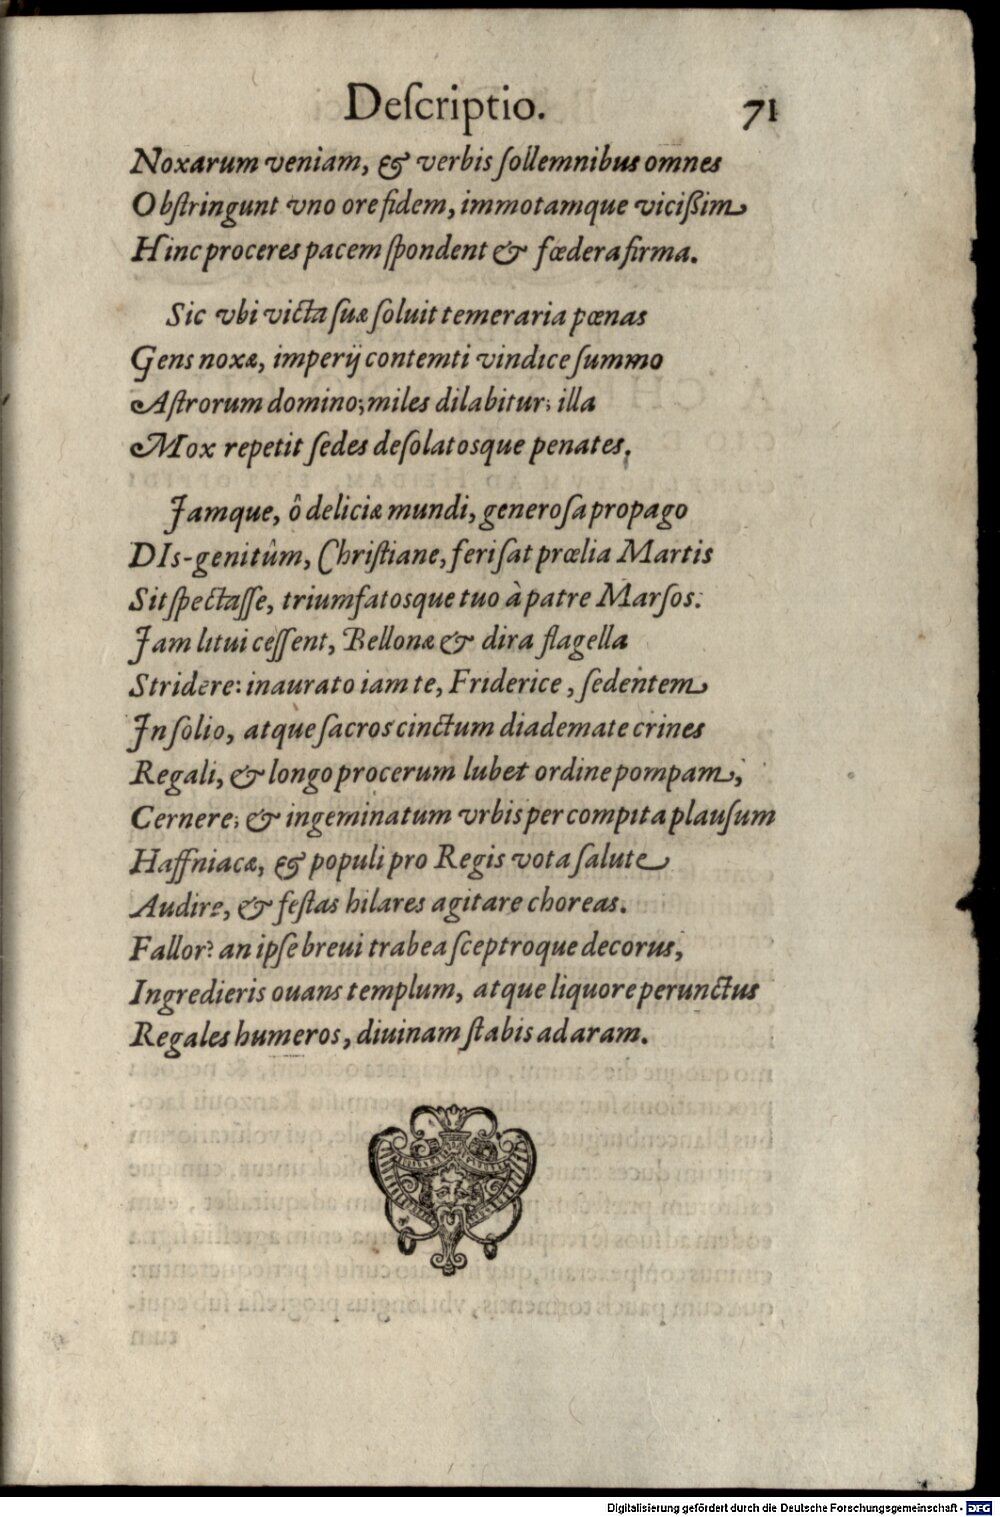 Deſcriptio. 71
Noxarum veniam, & verbis ſollemnibus omnes
Obſtringunt vno ore fidem, immotamque viciſſim
Hinc proceres pacem ſpondent & fœdera firma.
Sic vbi victa ſuæ ſoluit temeraria pœnas
Gens noxæ, imperij contemti vindice ſummo
Aſtrorum domino; miles dilabitur; illa
Mox repetit ſedes deſolatosque penates.
Jamque, ô deliciæ mundi, generoſa propago
DIs-genitûm, Chriſtiane, feri ſat prœlia Martis
Sit ſpectaſſe, triumfatosque tuo à patre Marſos:
Jam litui ceſſent, Bellonæ & dira flagella
Stridere: inaurato iam te, Friderice, ſedentem
In ſolio, atque ſacros cinctum diademate crines
Regali, & longo procerum lubet ordine pompam,
Cernere; & ingeminatum vrbis per compita plauſum
Haffniacæ, & populi pro Regis vota ſalute
Audire, & feſtas hilares agitare choreas.
Fallor? an ipſe breui trabea ſceptroque decorus,
Ingredieris ouans templum, atque liquore perunctus
Regales humeros, diuinam ſtabis ad aram.
Digitalisierung gefördert durch die Deutsche Forschungsgemeinschaft - DFG